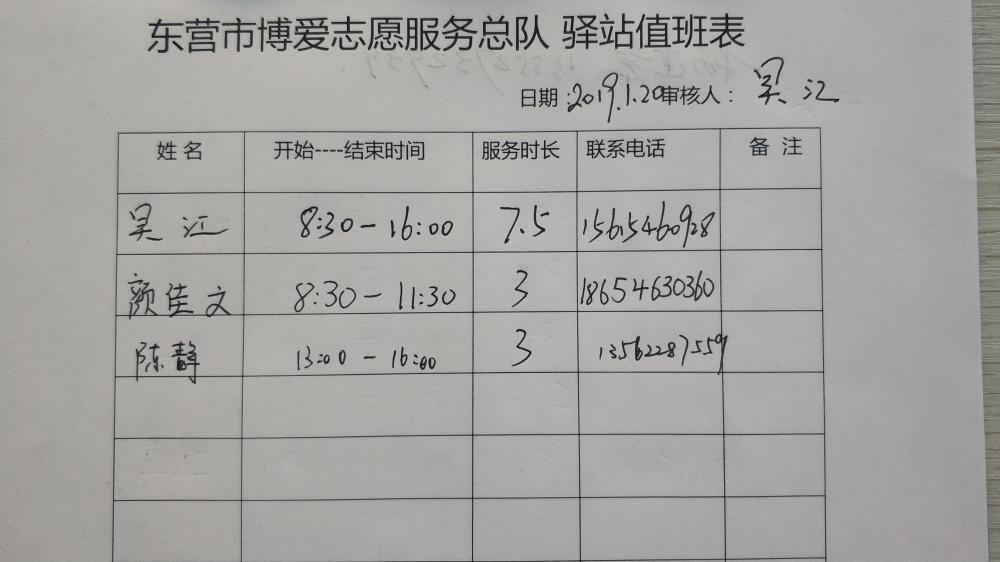 东营市博爱志愿服务总队 驿站值班表
日期：2019.1.20审核人： 吴江
姓名 开始----结束时间 服务时长 联系电话 备注
吴江 8:30-16:00 7.5 15615460928
颜佳文 8:30-11:30 3 18654630360
陈静 13:00-16:00 3 13562287559